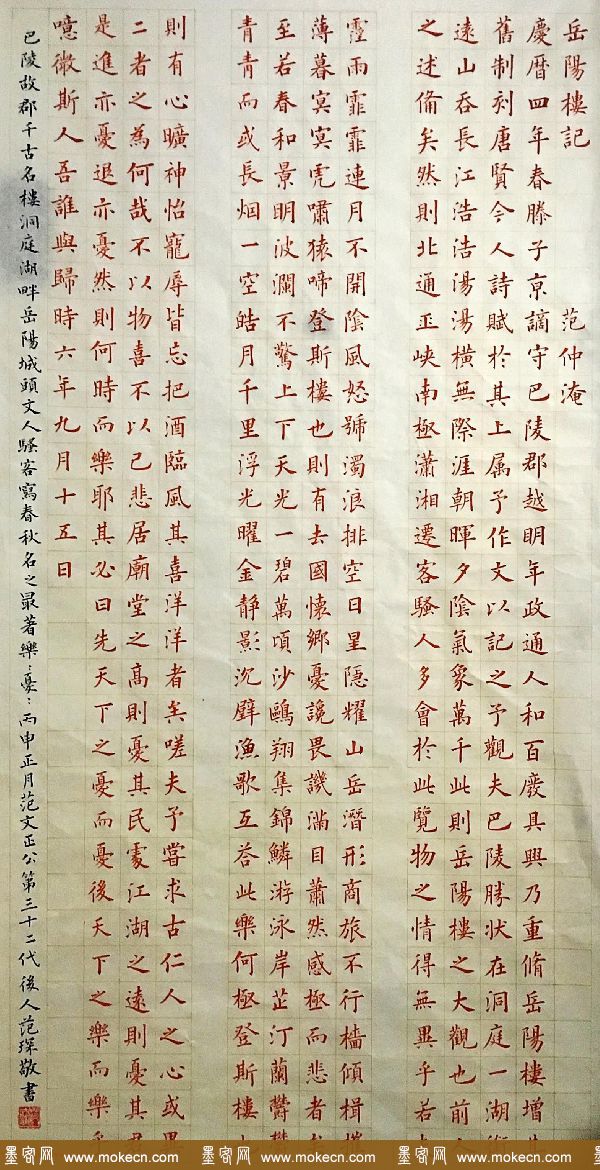 岳陽樓記 范仲淹
慶暦四年春滕子京謫守巴陵郡越明年政通人和百廢具興乃重脩岳陽樓增
舊制刻唐賢今人詩賦於其上属予作文以記之予觀夫巴陵勝状在洞庭一湖銜
遠山吞長江浩浩湯湯橫無際涯朝暉夕陰氣象萬千此則岳陽樓之大觀也前
之述備矣然則北通巫峽南極瀟湘遷客騷人多會於此覽物之情得無異乎若
霪雨霏霏連月不開陰風怒號濁浪排空日星隱耀山岳潛形商旅不行檣傾楫
薄暮冥冥虎嘯猿啼登斯樓也則有去國懷鄉憂讒畏譏滿目蕭然感極而悲者
至若春和景明波瀾不驚上下天光一碧萬頃沙鷗翔集錦鱗游泳岸芷汀蘭鬱鬱
青青而或長烟一空皓月千里浮光曜金静影沉璧漁歌互答此樂何極登斯樓
則有心曠神怡寵辱皆忘把酒臨風其喜洋洋者矣嗟夫予嘗求古仁人之心或異
二者之為何哉不以物喜不以己悲居廟堂之高則憂其民處江湖之遠則憂其君
是進亦憂退亦憂然則何時而樂耶其必曰先天下之憂而憂後天下之樂而樂
噫微斯人吾誰與歸時六年九月十五日
巴陵故郡千古名樓洞庭湖畔岳陽城頭文人騷客寫春秋名之最著樂〻憂〻丙申正月范文正公第三十二代後人范琛敬書
墨客网 www.mokecn.com 墨客网 www.mokecn.com 墨客网 www.mokecn.com